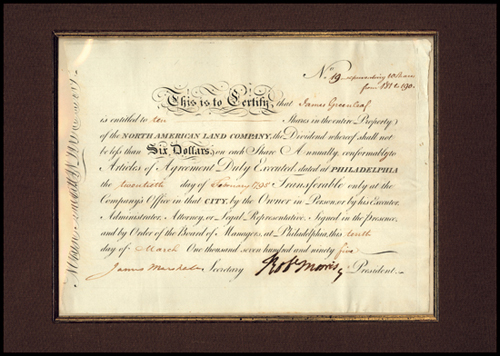 No 19 representing 10 Shares
from 181 to 190.
This is to Certify, that James Greenleaf
is entitled to ten Shares in the entire Property
of the NORTH AMERICAN LAND COMPANY, the Dividend whereof shall not
be less than Six Dollars, on each Share Annually, conformably to
Articles of Agreement Duly Executed; dated at PHILADELPHIA
the twentieth day of February 1795 Transferable only at the
Company's Office in that CITY, by the Owner in Person, or by his Executor
Administrator, Attorney, or Legal Representative. Signed in the presence,
and by Order of the Board of Managers, at Philadelphia, this tenth
day of March One thousand seven hundred and ninety five
James Marshall Secretary Robt Morris President.